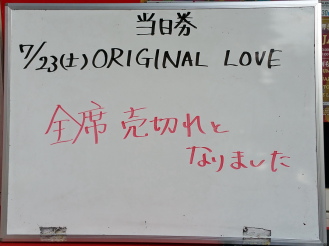 当日券
7/23(土)ORIGINAL LOVE
全席 売切れと
なりました